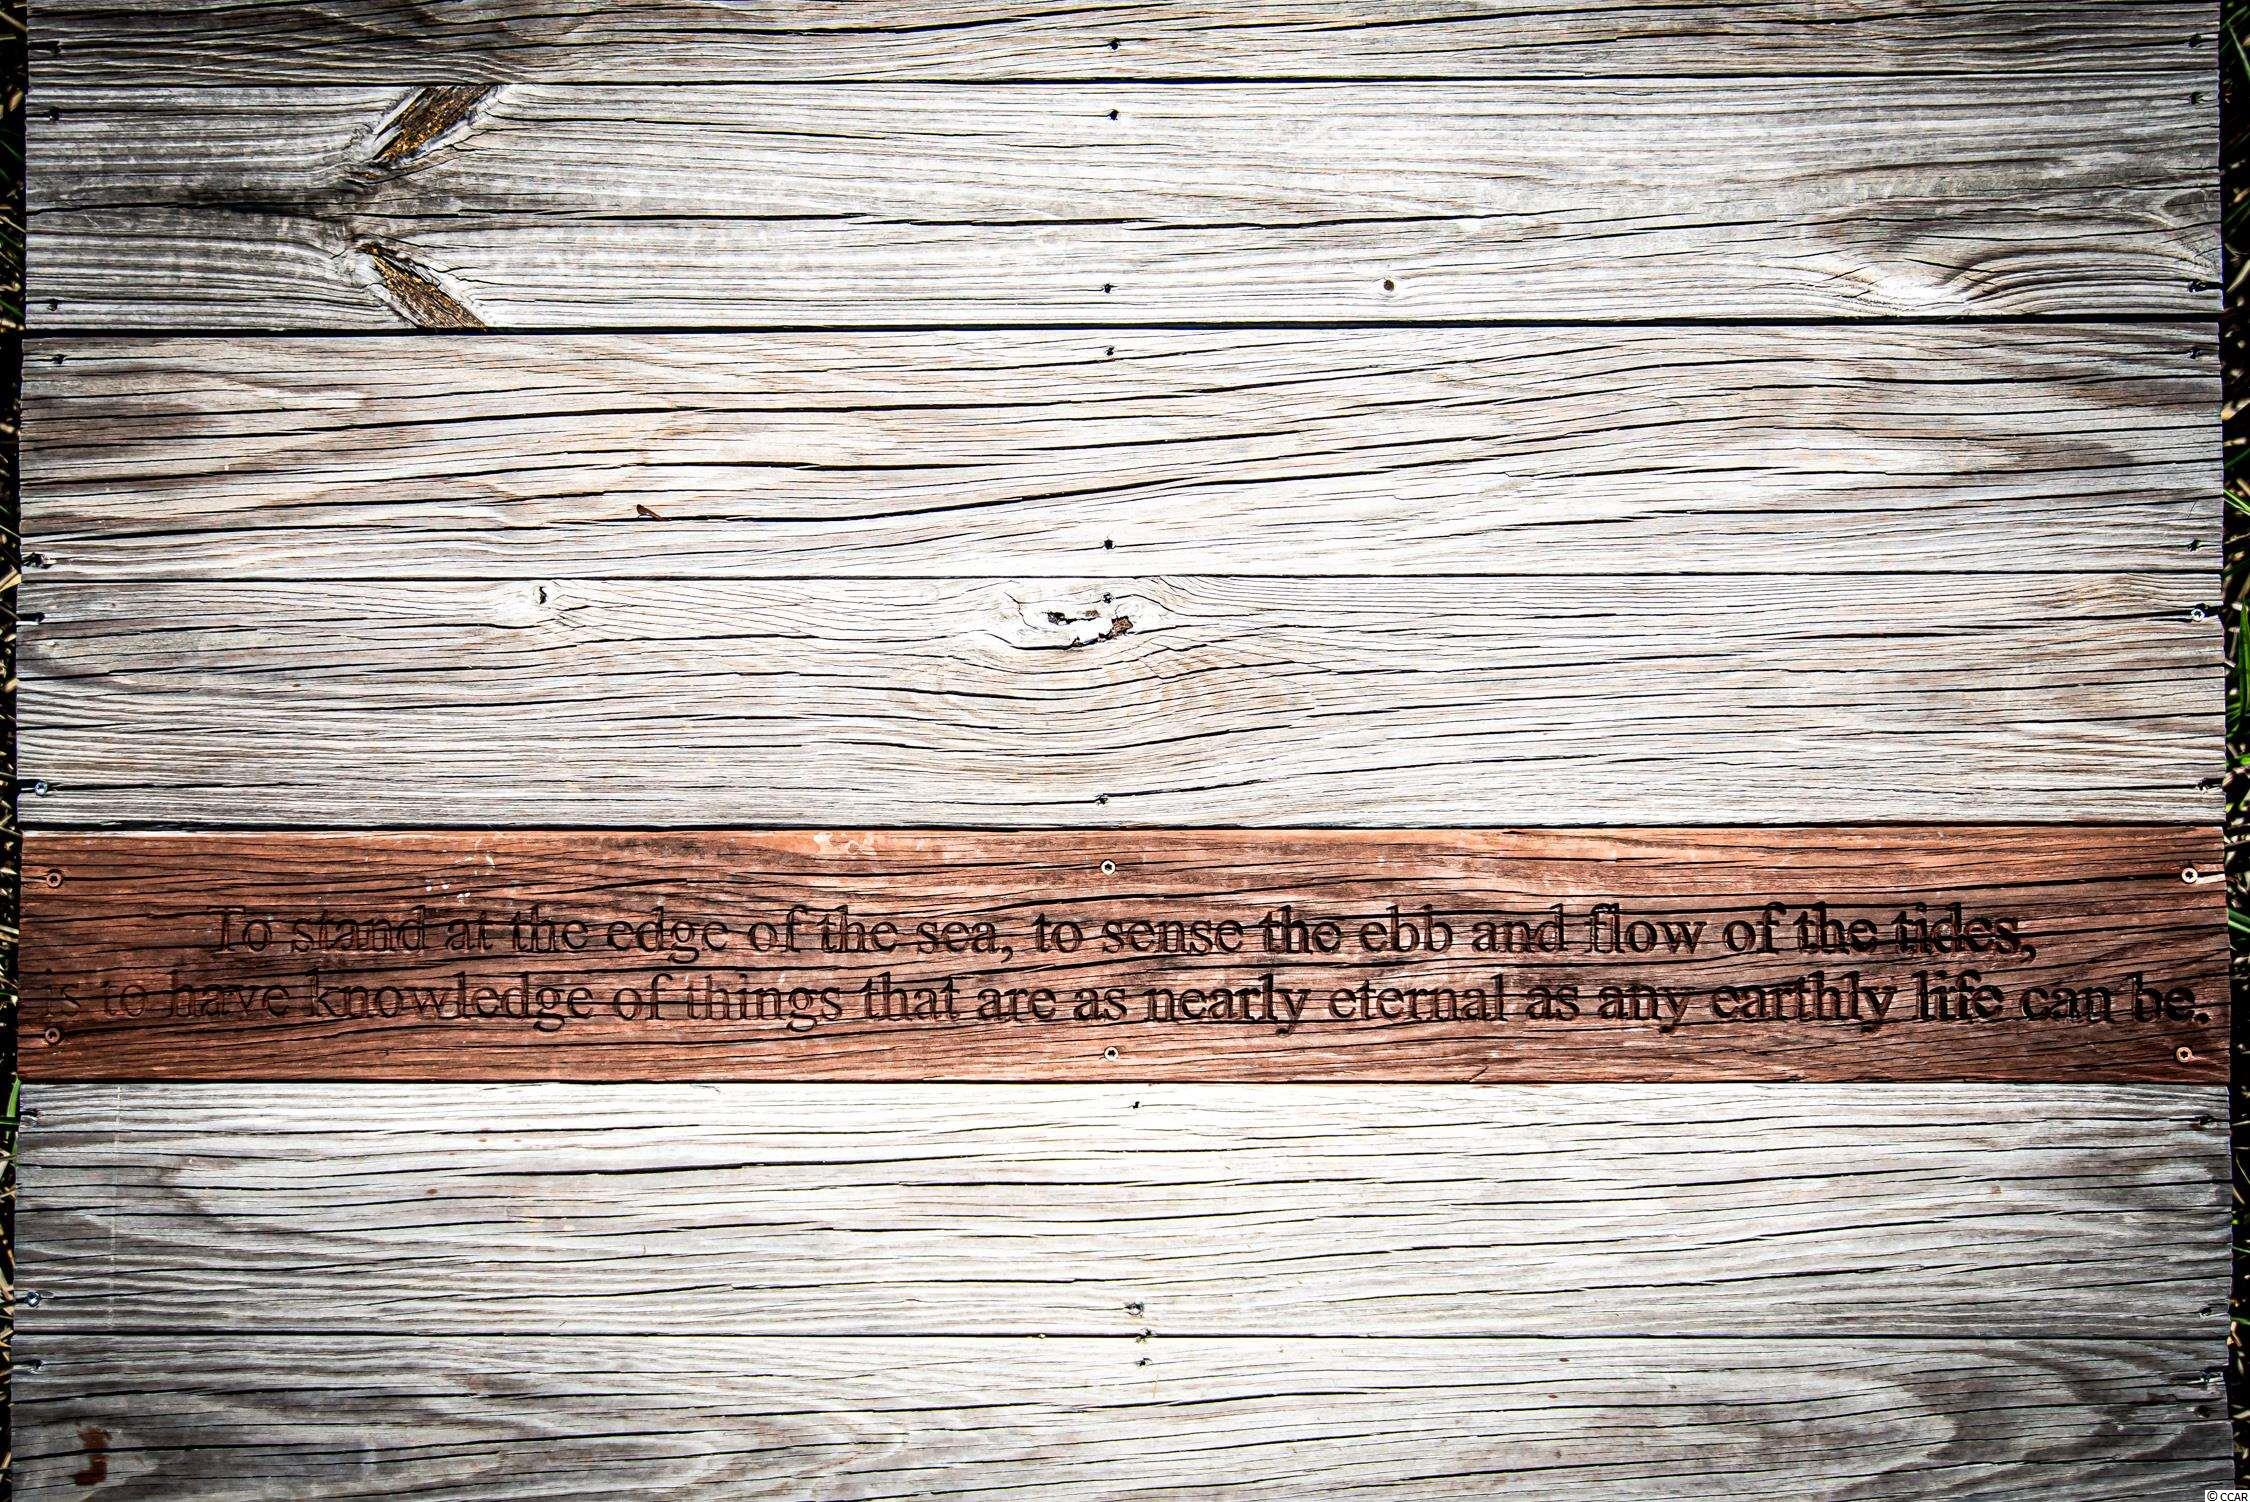 To stand at the edge of the sea, to sense the ebb and flow of the tides,
is to have knowledge of things that are as nearly eternal as any earthly life can be.
© CCAR